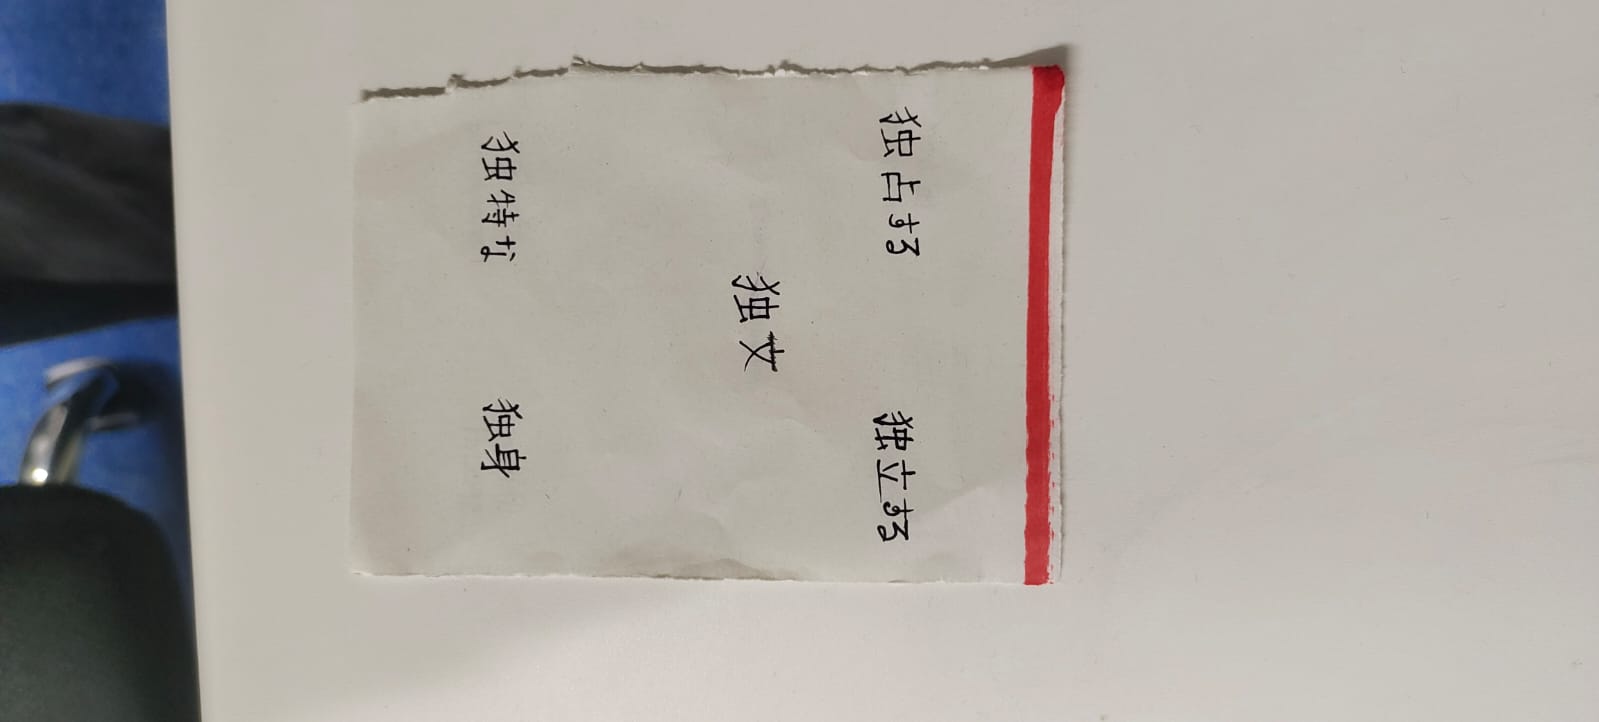 独占する 独立する
独文
独特な 独身